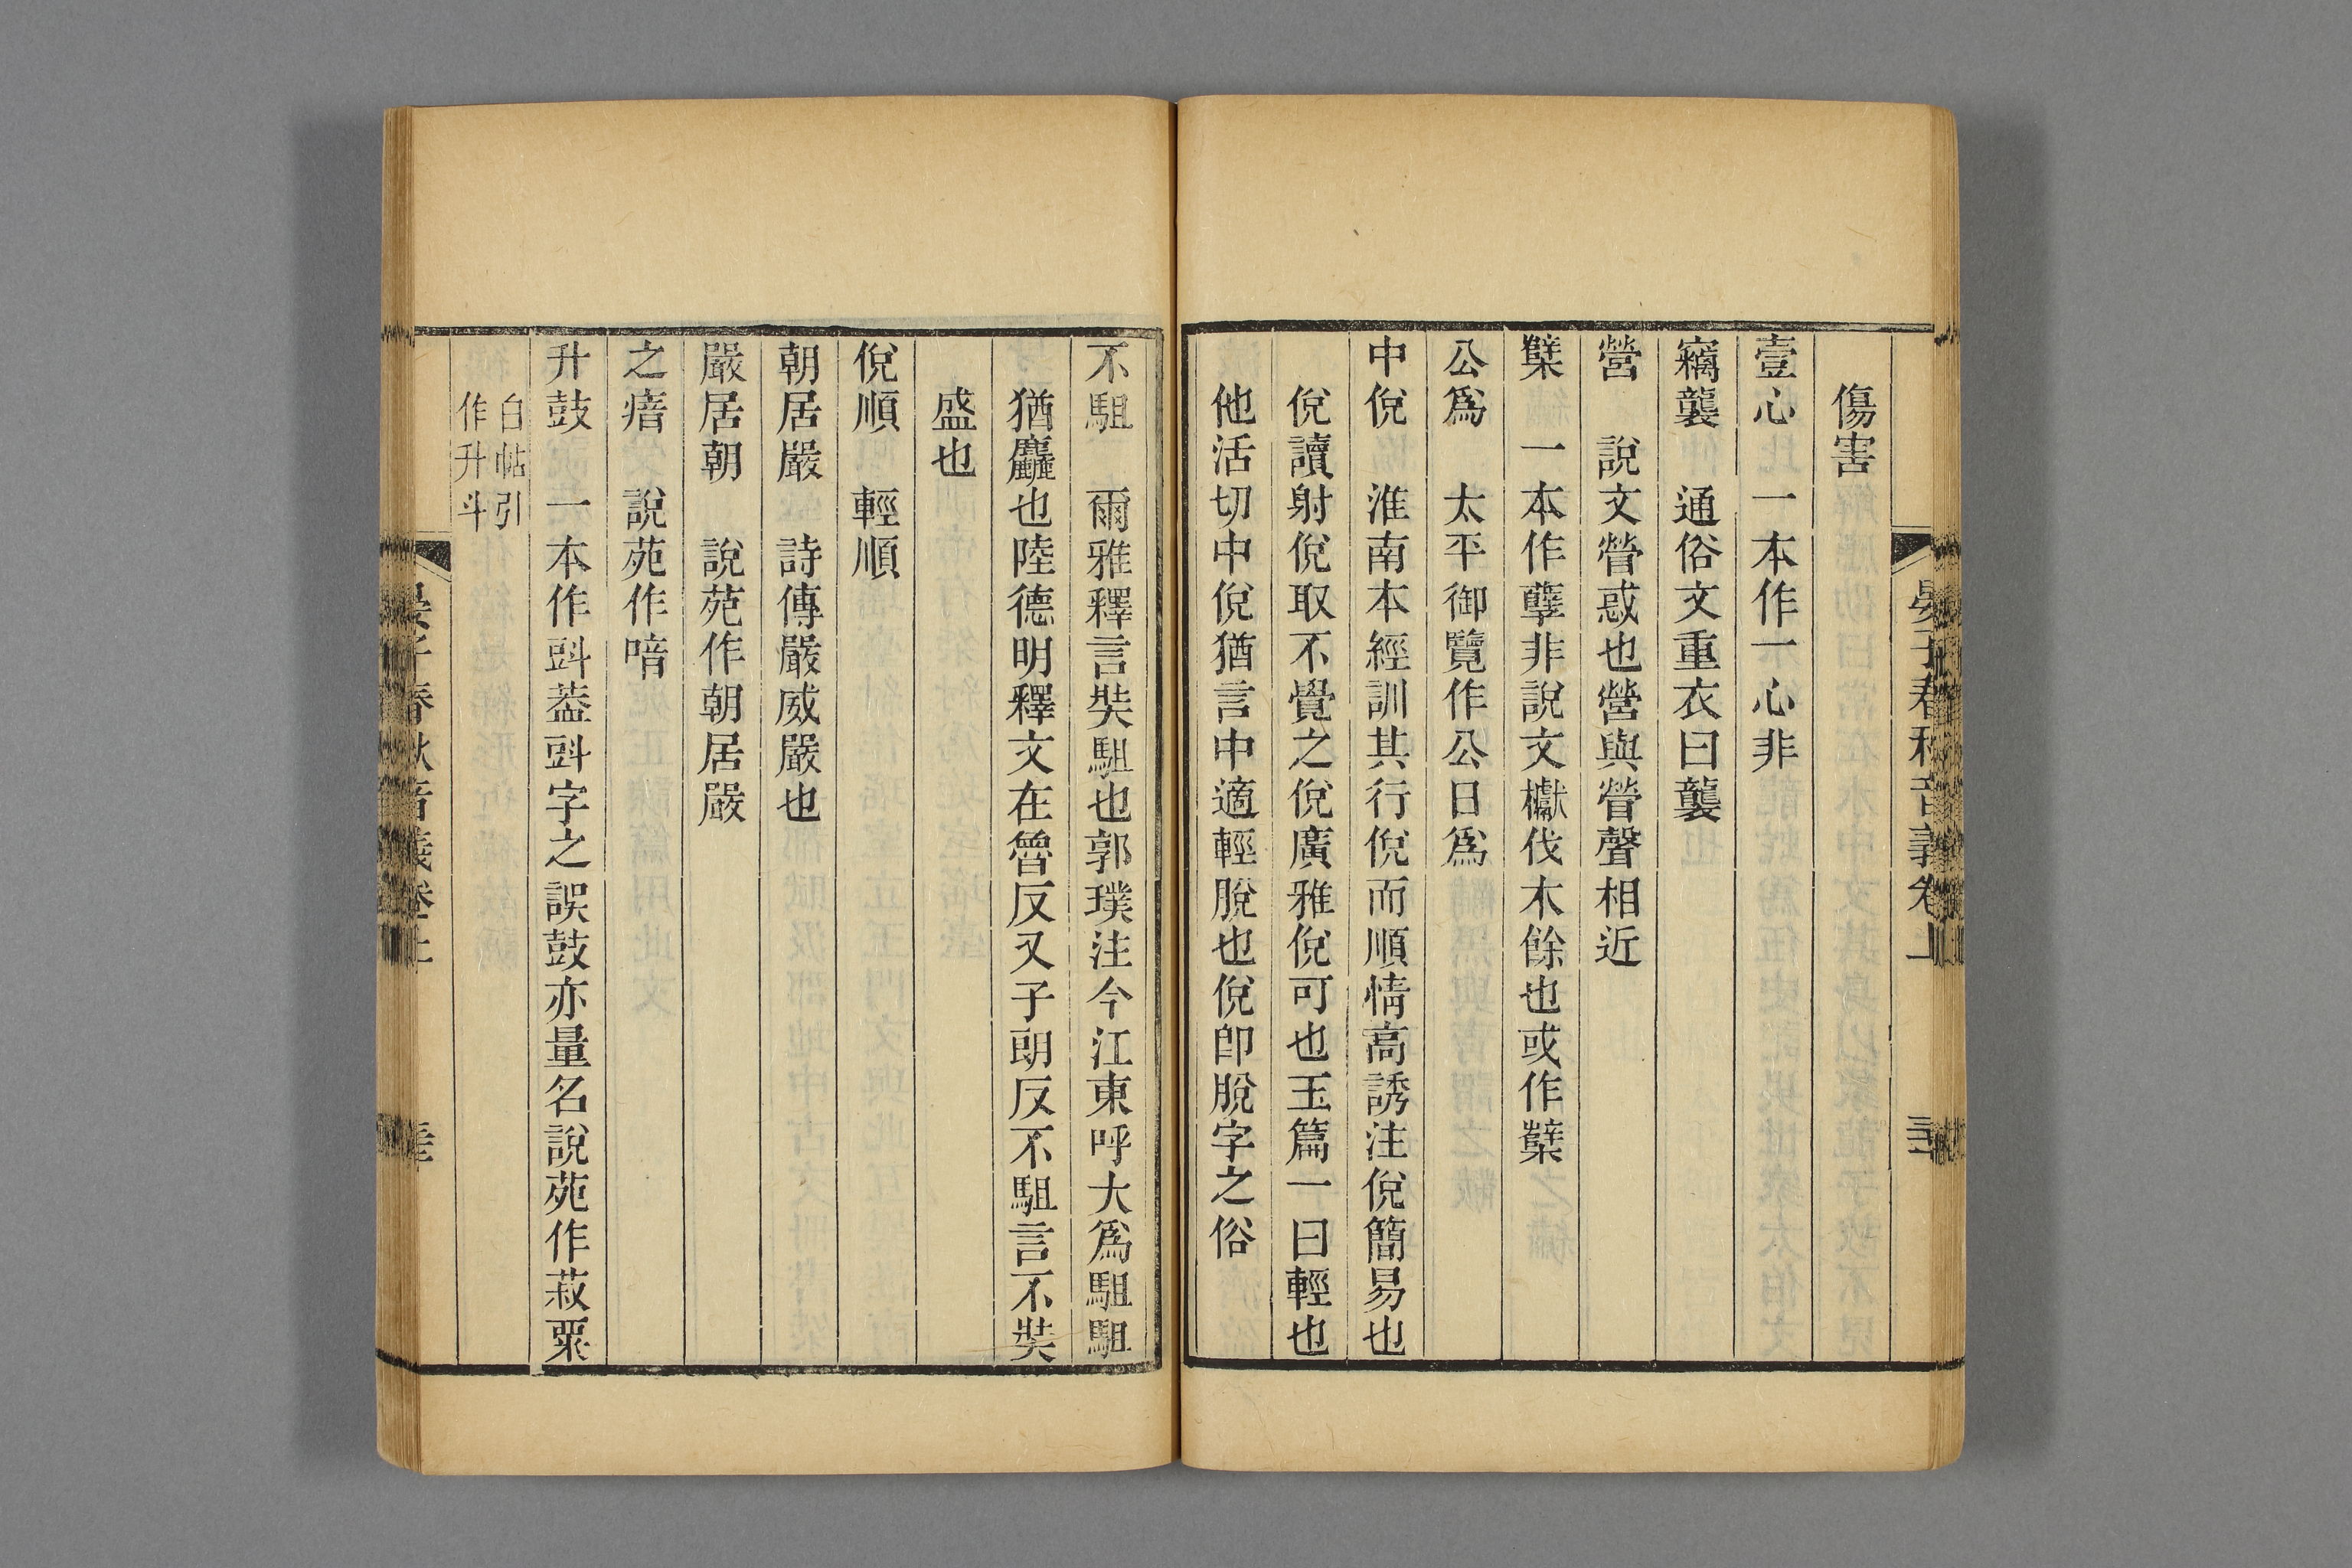 晏子春秋音義卷上
傷害
壹心　一本作一心非
竊襲　通俗文重衣曰襲
營　說文營惑也營與營聲相近
櫱　一本作孽非說文櫱伐木餘也或作蘖
公爲　太平御覽作公日爲
中倪　淮南本經訓其行倪而順情高誘注倪簡易也
倪讀射倪取不覺之倪廣雅倪可也玉篇一曰輕也
他活切中倪猶言中適輕脫也倪卽脫字之俗
不駔　爾雅釋言奘駔也郭璞注今江東呼大爲駔駔
猶麤也陸德明釋文在魯反又子朗反不駔言不奘
盛也
倪順　輕順
朝居嚴　詩傳嚴威嚴也
嚴居朝　說苑作朝居嚴
之瘖　說苑作喑
升鼓　一本作㪷葢㪷字之誤鼓亦量名說苑作菽粟
白帖引
作升斗
晏子春秋音義卷上